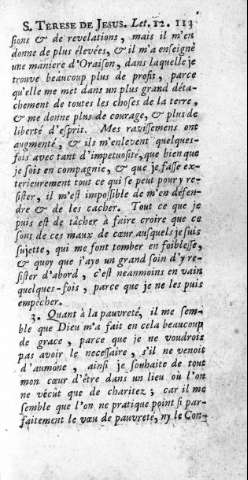 S. TERESE DE JESUS. Let. 12. 113
sions & de revelations, mais il m'en
donne de plus élevées, & il m'a enseigné
une maniere d'Oraison, dans laquelle je
trouve beaucoup plus de profit, parce
qu'elle me met dans un plus grand déta-
chement de toutes les choses de la terre,
& me donne plus de courage, & plus de
liberté d'esprit. Mes ravissemens ont
augmenté, & ils m'enlevent quelques-
fois avec tant d'impetuosité, que bien que
je sois en compagnie, & que je fasse ex-
terieurement tout ce qui se peut pour y re-
sister, il m'est impossible de m'en défen-
dre & de les cacher. Tout ce que je
puis est de tâcher à faire croire que ce
sont de ces maux de cœur ausquels je suis
sujette, qui me font tomber en foiblesse,
& quoy que j'aye un grand soin d'y re-
sister d'abord, c'est neanmoins en vain
quelques-fois, parce que je ne les puis
empêcher.
3. Quant à la pauvreté, il me sem-
ble que Dieu m'a fait en cela beaucoup
de grace, parce que je ne voudrois
pas avoir le necessaire, s'il ne venoit
d'aumône, ainsi je souhaite de tout
mon cœur d'être dans un lieu où l'on
ne vécût que de charitez; car il me
semble que l'on ne pratique point si par-
faitement le vœu de pauvreté, ny le Con-